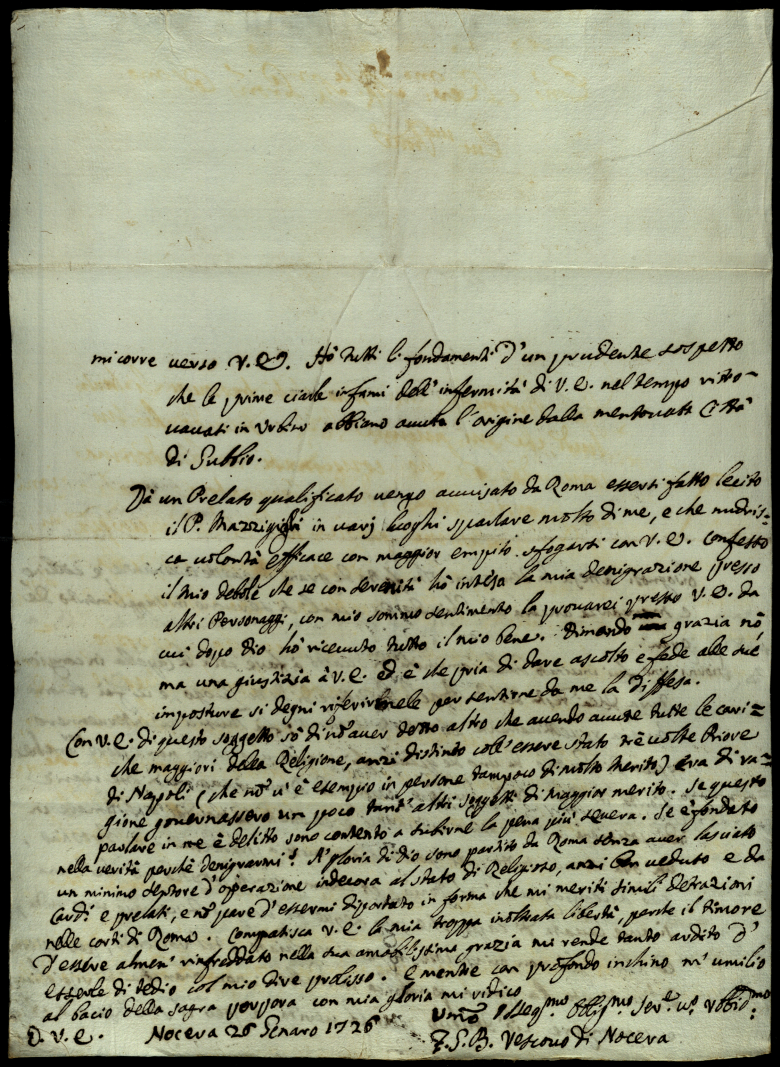 mi corre verso V.E. Hò tutti li fondamenti d'un prudente sospetto
che le prime ciarle infami dell'infermità di V.E. nel tempo ritro=
vavasi in Urbino abbiano avuta l'origine dalla mentovata Città
di Gubbio.
Dà un Prelato qualificato vengo avvisato da Roma essersi fatto lecito
il P. in varj luoghi sparlare molto di me, e che nudris=
ca volontà efficace con maggior empito sfogarsi con V.E. Confesso
il mio debole che se con serenità hò intesa la mia denigrazione presso
altri Personaggi, con mio sommo sentimento la provarei presso V.E. da
cui dopo Dio hò ricevuto tutto il mio bene. Dimando grazia nò
ma una giustizia à V.E. ed è che pria di dare ascolto e fede alle sue
imposture si degni riferirmele per sentirne da me la difesa.
Con V.E. di questo soggetto sò di nò aver detto altro che avendo avute tutte le cari=
che maggiori della Religione, anzi distinto coll'essere stato trè volte Priore
di Napoli (che nò vi è esempio in persone tampoco di molto merito) era di ra=
gione governassero un poco tant'altri soggetti di maggior merito. Se questo
parlare in me è delitto sono contento a subirne la pena più severa. Se è fondato
nella verità perchè denigrarmi? A gloria di Dio sono partito da Roma senza aver lasciato
un minimo d'operazione indecora al stato di Religioso, anzi ben veduto e da
Cardi e prelati, e nò pare d'essermi diportato in forma che mi meriti simili detrazioni
nelle corti di Roma. Compatisca V.E. la mia troppa inoltrata libertà, parte il timore
d'essere almen' rinfreddato nella sua amabilissima grazia mi rende tanto ardito d'
esserle di tedio col mio dire prolisso. E mentre con profondo inchino m'umilio
al bacio della sagra porpora con mia gloria mi ridico
D. V. E. Nocera 26 Genaro 1726 Umo Obligmo Serve
F. G. B. Vescovo di Nocera